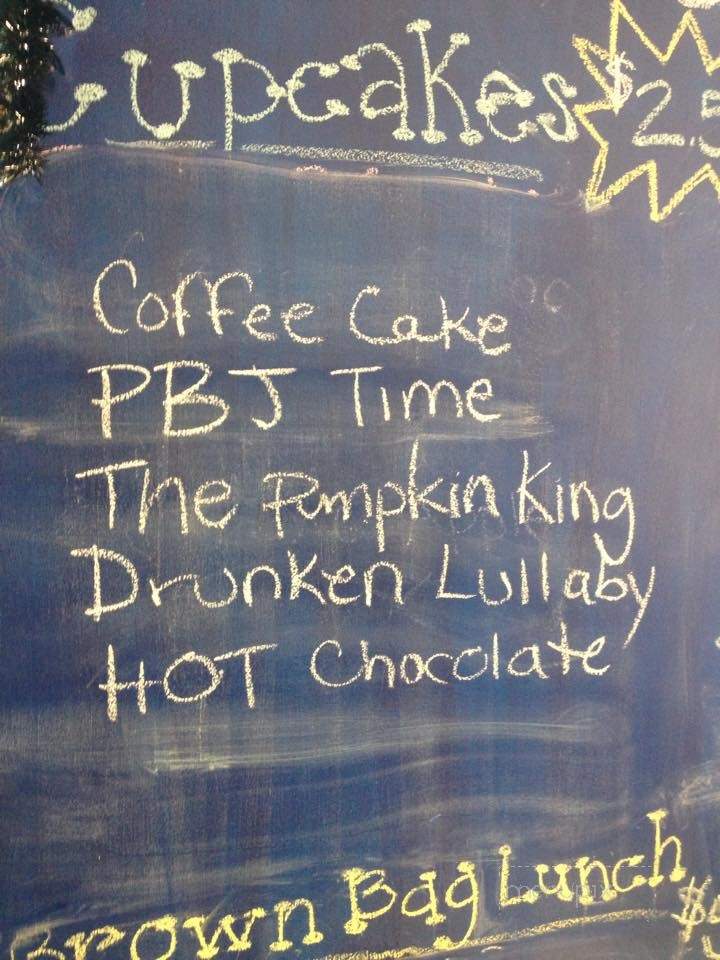 Cupcakes $2.5
Coffee Cake
PBJ Time
The Pumpkin King
Drunken Lullaby
HOT Chocolate
Brown Bag Lunch $